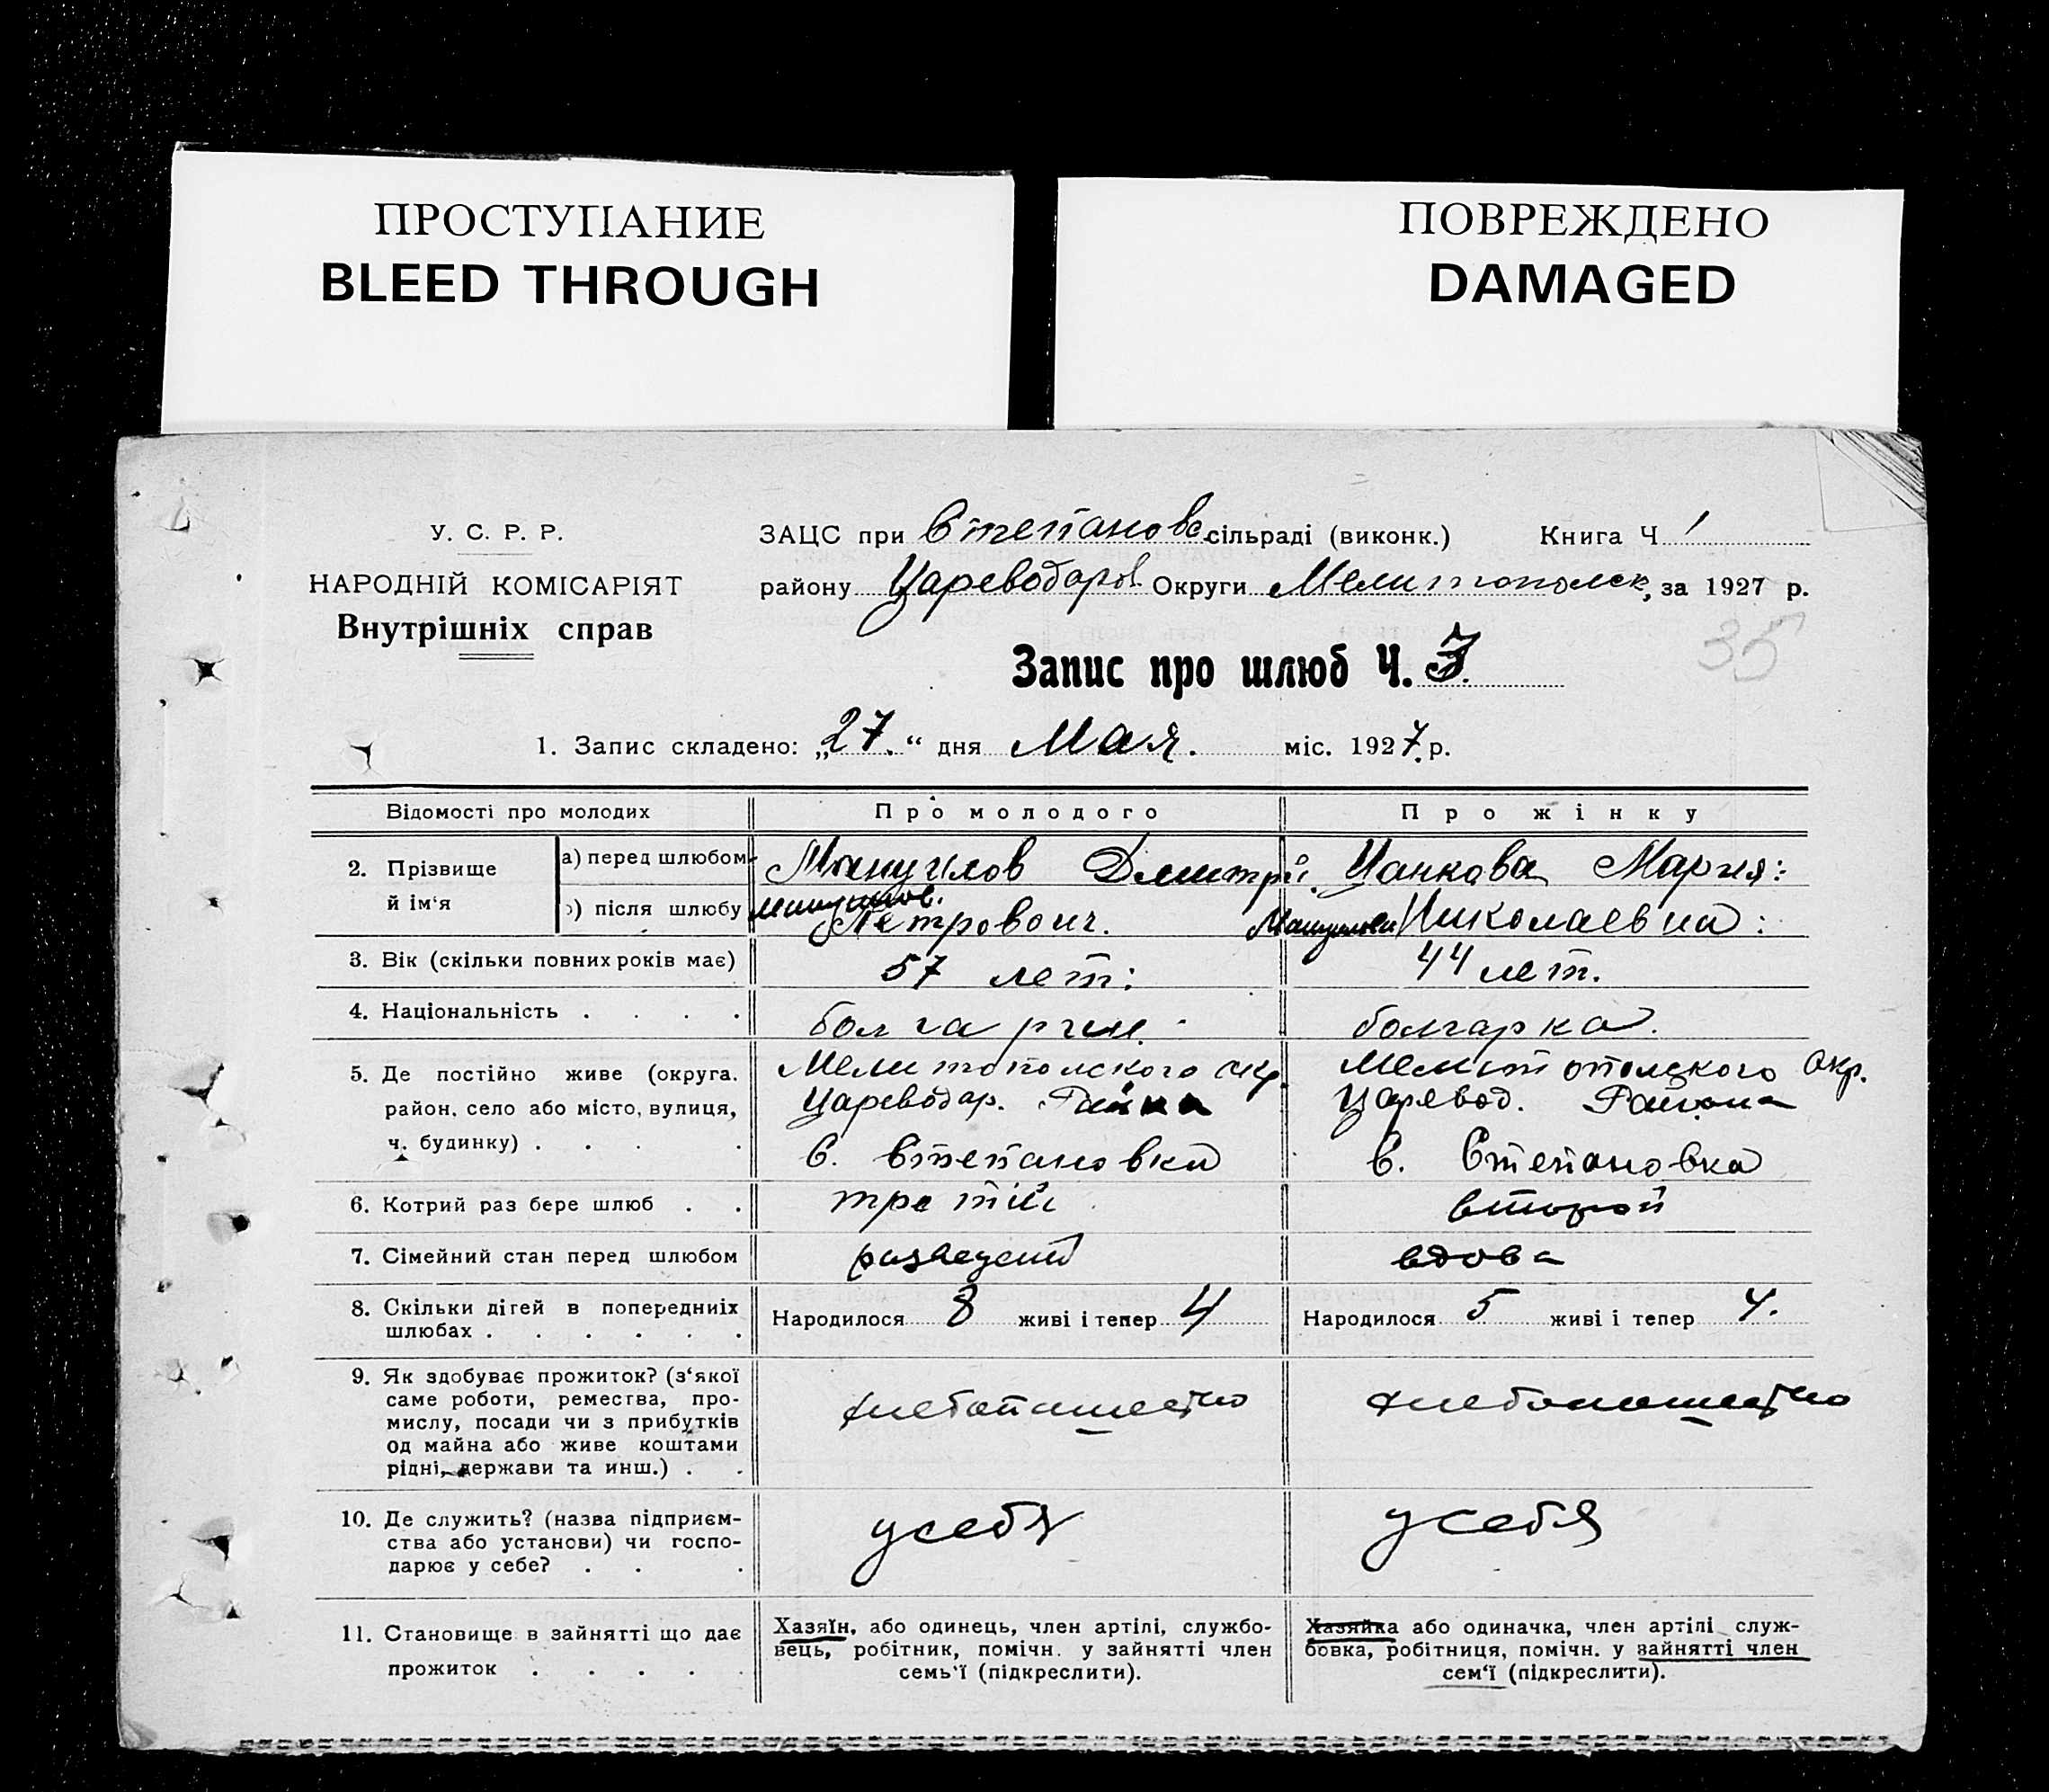 ПРОСТУПАНИЕ
BLEED THROUGH
ПОВРЕЖДЕНО
DAMAGED
У. С. Р. Р.
НАРОДНІЙ КОМІСАРІЯТ
Внутрішніх справ
ЗАЦС при Степановс сільраді (виконк.) Книга Ч 1
району Цареводаров Округи Мелитополск, за 1927 р.
35
Запис про шлюб Ч. 7.
1. Запис складено: „27.“ дня Мая. міс. 1927 р.
Відомості про молодих
Про молодого
Про жінку
2. Прізвище й ім'я
а) перед шлюбом
Манушлов Дмитрій
Цанкова Мария:
б) після шлюбу
Петрович.
Николаевна:
3. Вік (скільки повних років має)
57 лет:
44 лет.
4. Національність . . . .
болгарин.
болгарка.
5. Де постійно живе (округа. район. село або місто, вулиця, ч. будинку) . . . .
Мелитополского окр.
Цареводар. Района
С. Степановка
Мелитополского Окр.
Царевод. Района
С. Степановка
6. Котрий раз бере шлюб . .
третий
второй
7. Сімейний стан перед шлюбом
разведений
вдова
8. Скільки дітей в попередніх шлюбах . . . . . .
Народилося 8 живі і тепер 4
Народилося 5 живі і тепер 4.
9. Як здобуває прожиток? (з'якої
саме роботи, ремества, про-
мислу, посади чи з прибутків
од майна або живе коштами
рідні, держави та инш.) . .
хлебопашество
хлебопашество
10. Де служить? (назва підприєм-
ства або установи) чи госпо-
дарює у себе? . . .
у себя
у себя
11. Становище в зайнятті що дає
прожиток . . . . .
Хазяїн, або одинець, член артілі, службо-
вець, робітник, помічн. у зайнятті член
семь'ї (підкреслити).
Хазяйка або одиначка, член артілі служ-
бовка, робітниця, помічн. у зайнятті член
сем'ї (підкреслити).